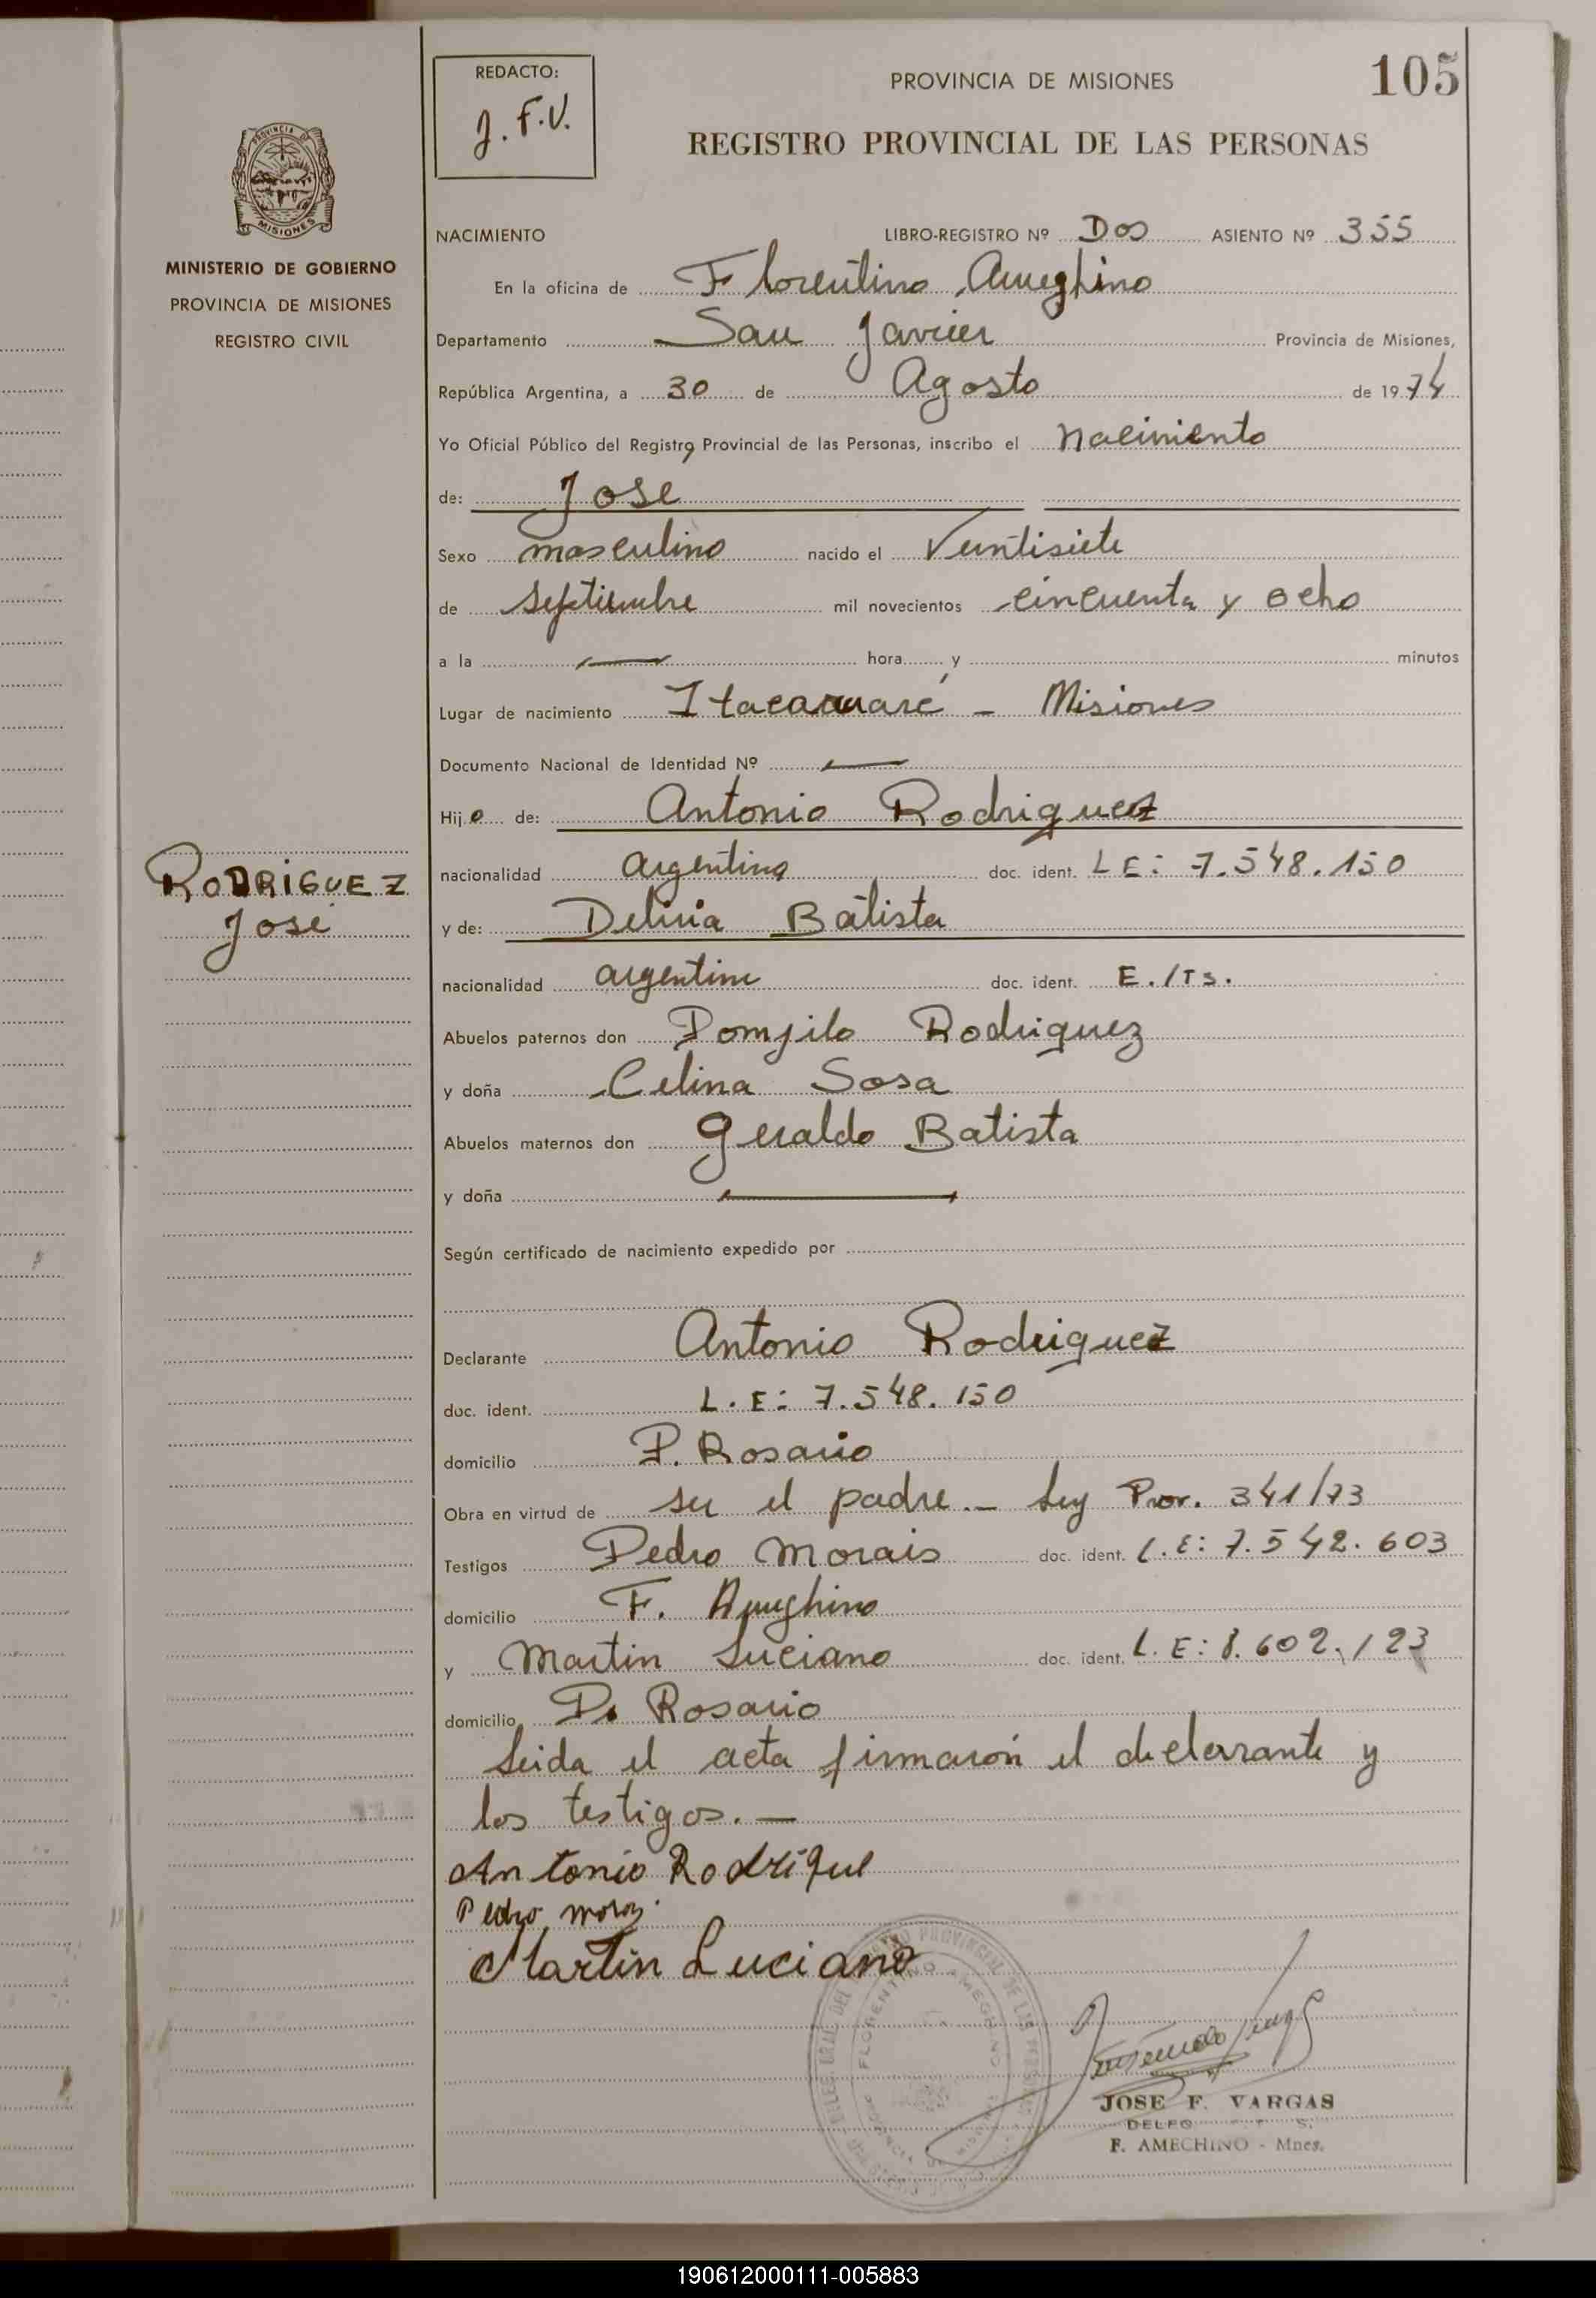 REDACTO:
J. F. V.
PROVINCIA DE MISIONES
105
REGISTRO PROVINCIAL DE LAS PERSONAS
PROVINCIA DE
MISIONES
MINISTERIO DE GOBIERNO
PROVINCIA DE MISIONES
REGISTRO CIVIL
NACIMIENTO LIBRO-REGISTRO Nº Dos ASIENTO Nº 355
En la oficina de Florentino Ameghino
Departamento San Javier Provincia de Misiones,
República Argentina, a 30 de Agosto de 1974
Yo Oficial Público del Registro Provincial de las Personas, inscribo el nacimiento
de: Jose
Sexo masculino nacido el Veintisiete
de septiembre mil novecientos cincuenta y ocho
a la — hora y minutos
Lugar de nacimiento Itacaruaré - Misiones
Documento Nacional de Identidad Nº —
Hijo de: Antonio Rodriguez
nacionalidad argentina doc. ident. L E: 7.548.150
RODRIGUEZ
José
y de: Delina Batista
nacionalidad argentina doc. ident. E./Ts.
Abuelos paternos don Pompilo Rodriguez
y doña Celina Sosa
Abuelos maternos don Geraldo Batista
y doña —
Según certificado de nacimiento expedido por
Declarante Antonio Rodriguez
doc. ident. L. E: 7.548.150
domicilio P. Rosario
Obra en virtud de ser el padre.- Ley Prov. 341/73
Testigos Pedro Morais doc. ident. L. E: 7.542.603
domicilio F. Ameghino
y Martin Luciano doc. ident. L. E: 8.602.123
domicilio P. Rosario
Leida el acta firmarón el declarante y
los testigos.—
Antonio Rodrigue
Pedro
Martin Luciano
FLORENTINO AMEGHINO
JOSE F. VARGAS
F. AMECHINO - Mnes.
190612000111-005883